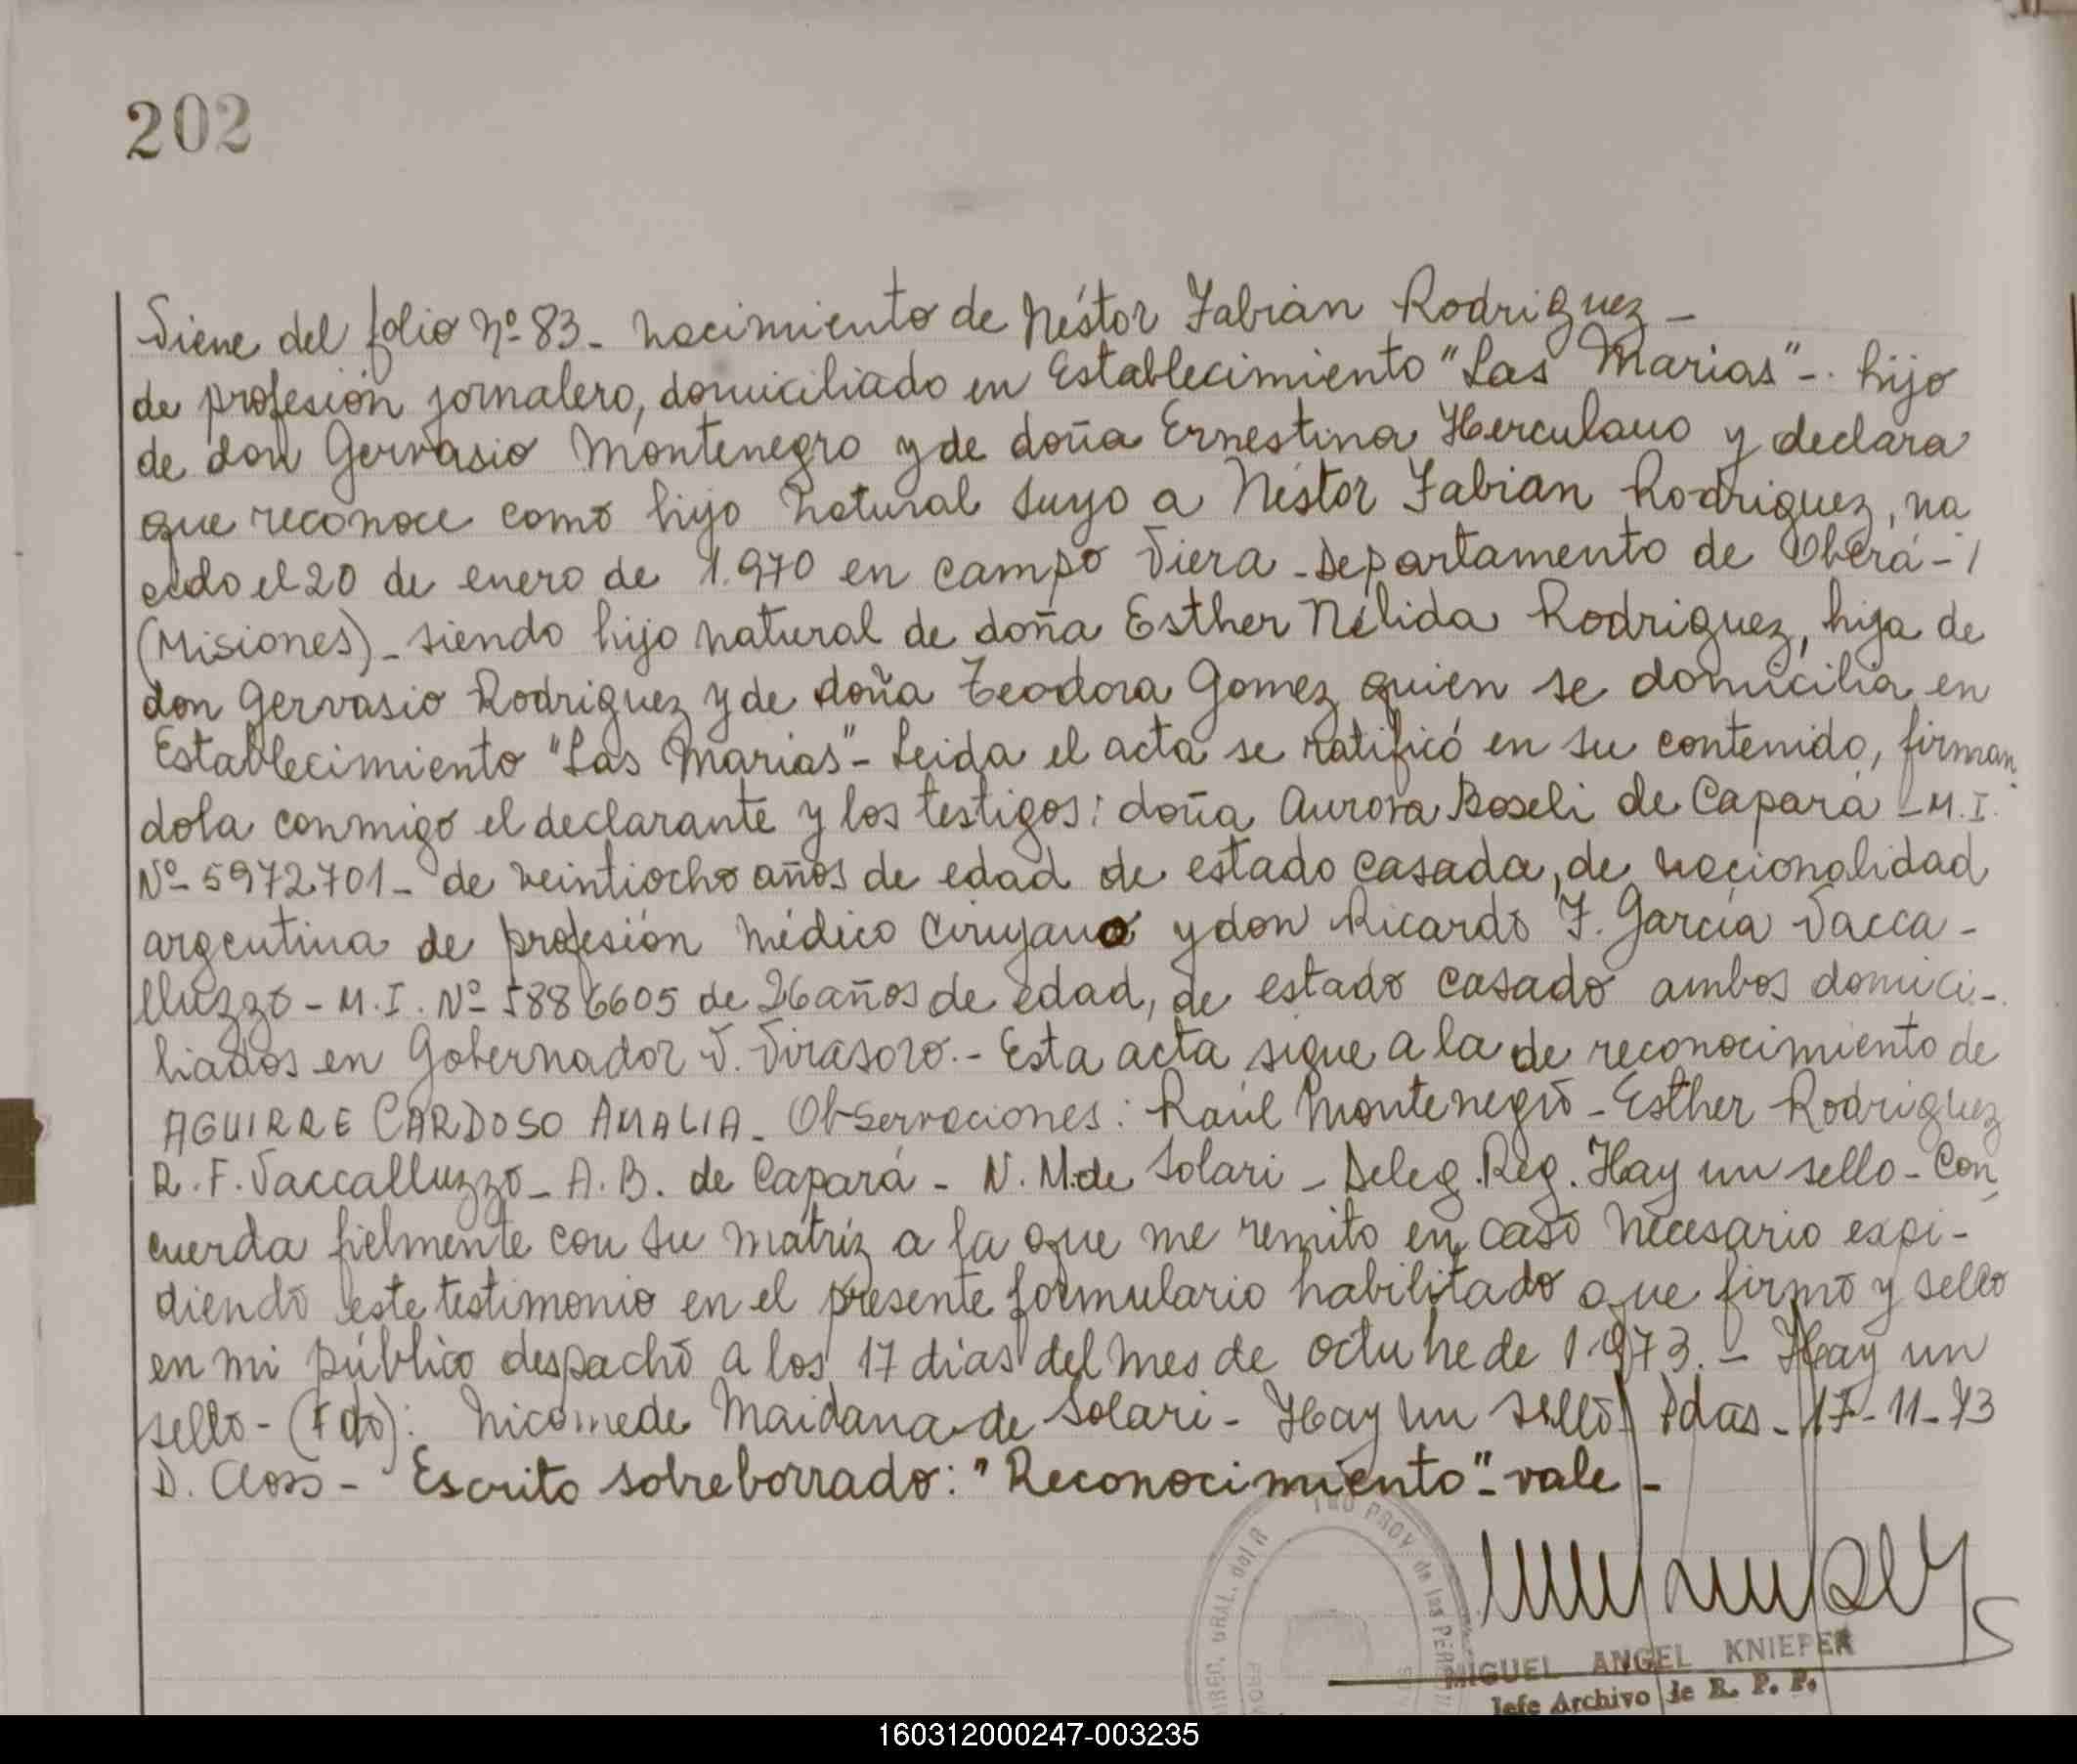 202
Viene del folio Nº 83 - Nacimiento de Néstor Fabián Rodriguez -
de profesión jornalero, domiciliado en Establecimiento "Las Marias" -. hijo
de don Gervasio Montenegro y de doña Ernestina Herculano y declara
que reconoce como hijo natural suyo a Néstor Fabián Rodriguez, na
cido el 20 de enero de 1.970 en campo Viera - Departamento de Oberá - /
(Misiones) - siendo hijo natural de doña Esther Nélida Rodriguez, hija de
don Gervasio Rodriguez y de doña Teodora Gomez quien se domicilia en
Establecimiento "Las Marias" - Leida el acta se ratificó en su contenido, firman
dola conmigo el declarante y los testigos: doña Aurora Boseli de Capará - M.I.
Nº 5972701 - de veintiocho años de edad de estado casada, de nacionalidad
argentina de profesión Médico Cirujano y don Ricardo F. García Vacca -
lluzzo - M.I. Nº 5886605 de 26 años de edad, de estado casado ambos domici -
liados en Gobernador V. Virasoro. - Esta acta sigue a la de reconocimiento de
AGUIRRE CARDOSO AMALIA - Observaciones: Raúl Montenegro - Esther Rodriguez
R. F. Vaccalluzzo - A. B. de Capará - N. M. de Solari - Deleg. Reg. Hay un sello - Con
cuerda fielmente con su matríz a la que me remito en caso necesario expi -
diendo este testimonio en el presente formulario habilitado que firmo y sello
en mi público despacho a los 17 dias del mes de octubre de 1973. - Hay un
sello - (Fdo): Nicomede Maidana de Solari - Hay un sello Pdas - 17 - 11 - 73
D. Closs - Escrito sobreborrado: "Reconocimiento" - vale -
MIGUEL ANGEL KNIEPER
Jefe Archivo de R. P. P.
160312000247-003235